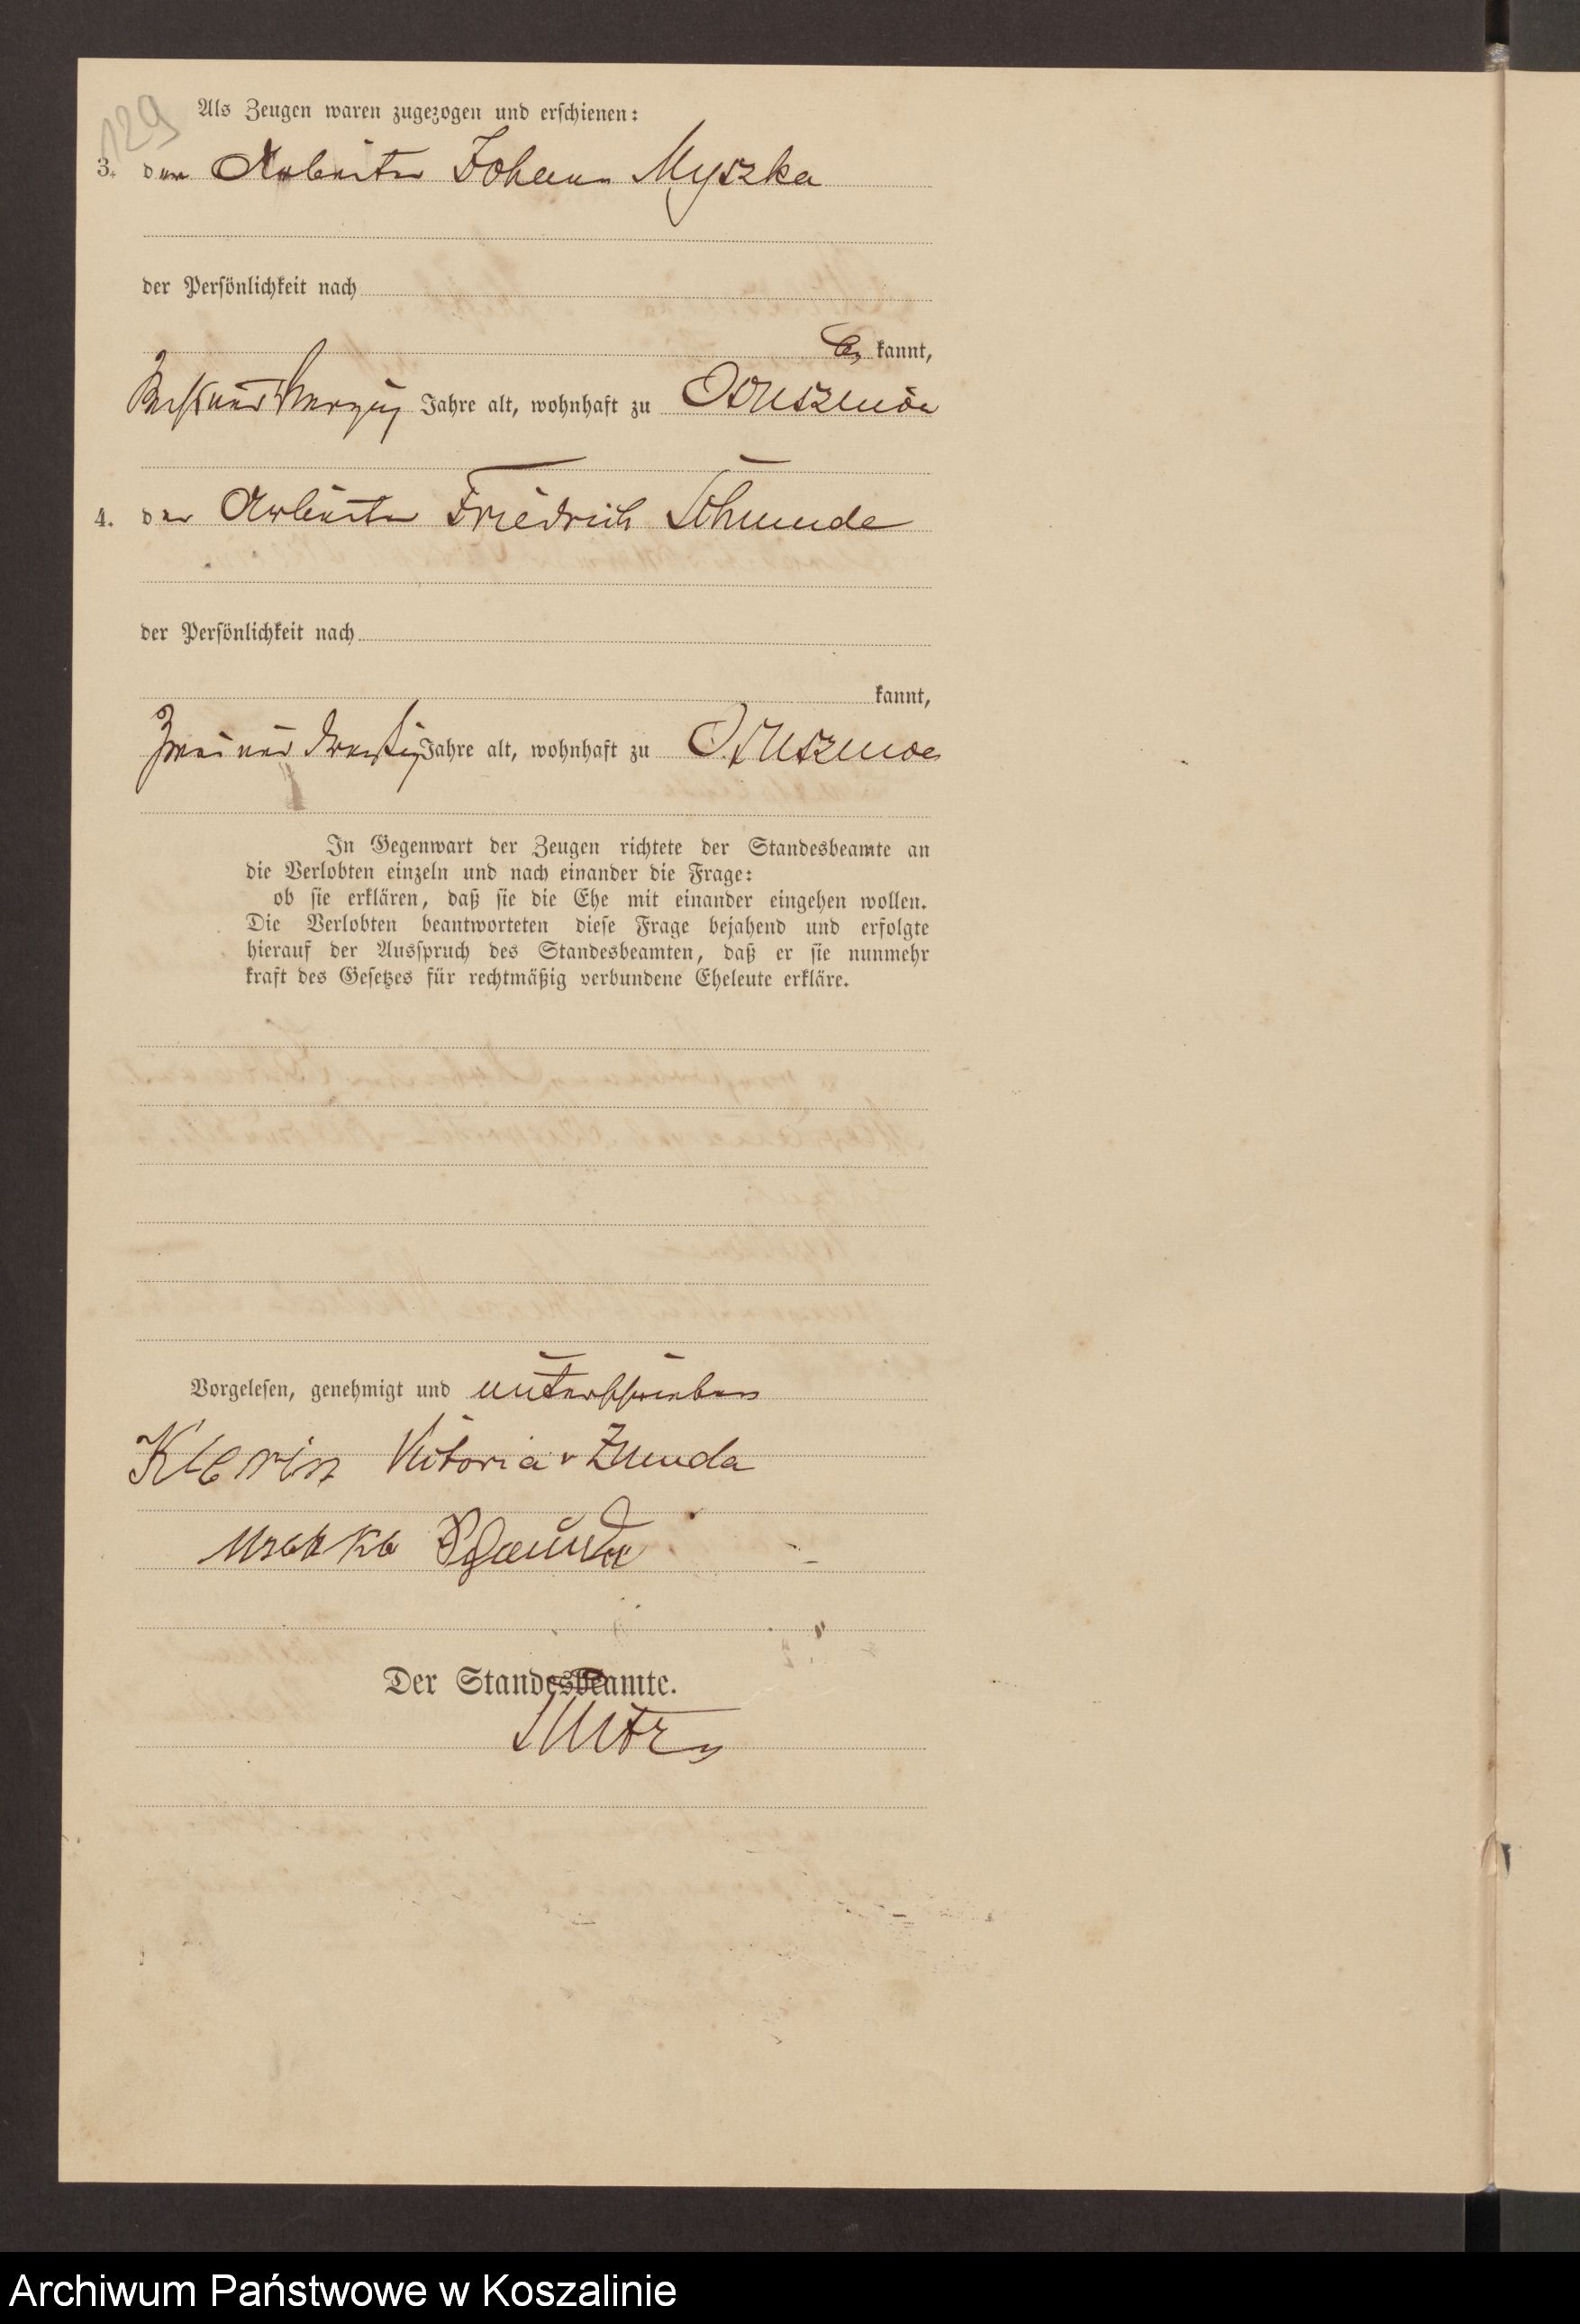 129
Als Zeugen waren zugezogen und erschienen:
3. der Arbeiter Johann Myszka
der Persönlichkeit nach
be kannt,
Jahre alt, wohnhaft zu
4. der Arbeiter Friedrich Schmude
der Persönlichkeit nach
kannt,
zwei und dreißig Jahre alt, wohnhaft zu
In Gegenwart der Zeugen richtete der Standesbeamte an
die Verlobten einzeln und nach einander die Frage:
ob sie erklären, daß sie die Ehe mit einander eingehen wollen.
Die Verlobten beantworteten diese Frage bejahend und erfolgte
hierauf der Ausspruch des Standesbeamten, daß er sie nunmehr
kraft des Gesetzes für rechtmäßig verbundene Eheleute erkläre.
Vorgelesen, genehmigt und unterschrieben
Vitoria v Zmuda
Der Standesbeamte.
Archiwum Państwowe w Koszalinie